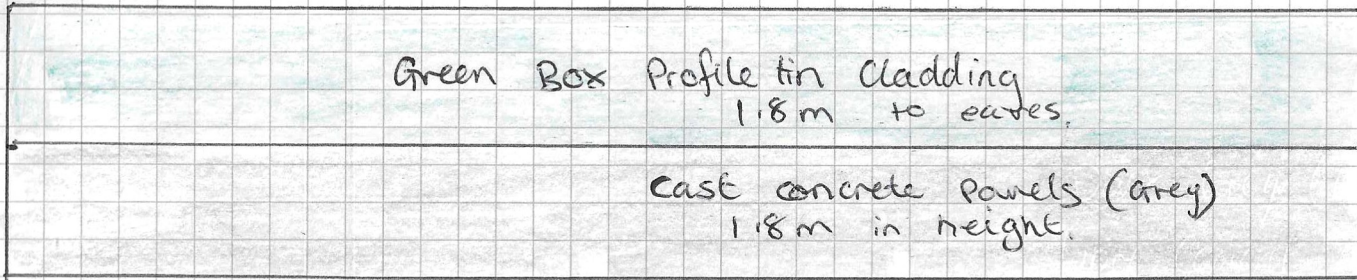 Green Box Profile tin Cladding
1.8m to eaves.
Cast concrete Panels (Grey)
1.8m in height.